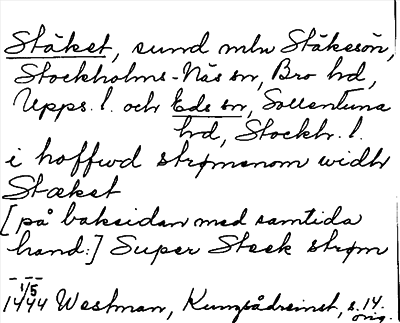 Stäket, sund mln Stäkesön,
Stockholms-Näs sn, Bro hd,
Upps. l. och Eds sn, Sollentuna
hd, Stockh. l.
i hoffwd strømenom widh
Stæket
[på baksidan med samtida
hand:] Super Steck strøm
1/5
1444 Westman, Kungsådreinst, s. 14.
orig.